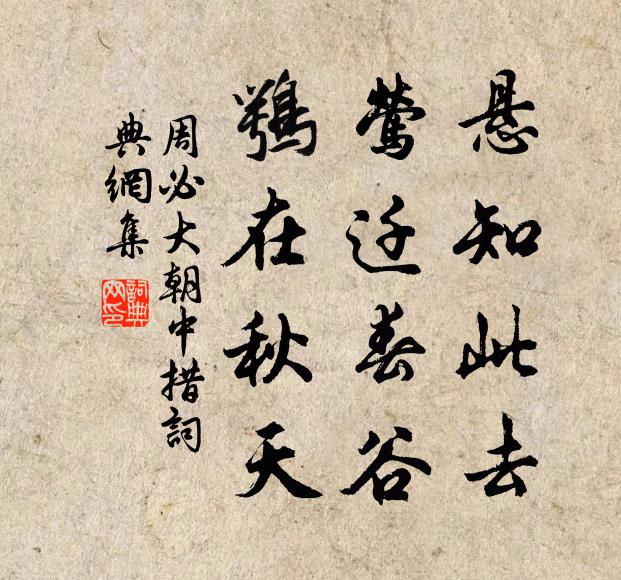 悬知此去
莺迁春谷
鶚在秋天
周必大朝中措詞
典網集
詞典
网印